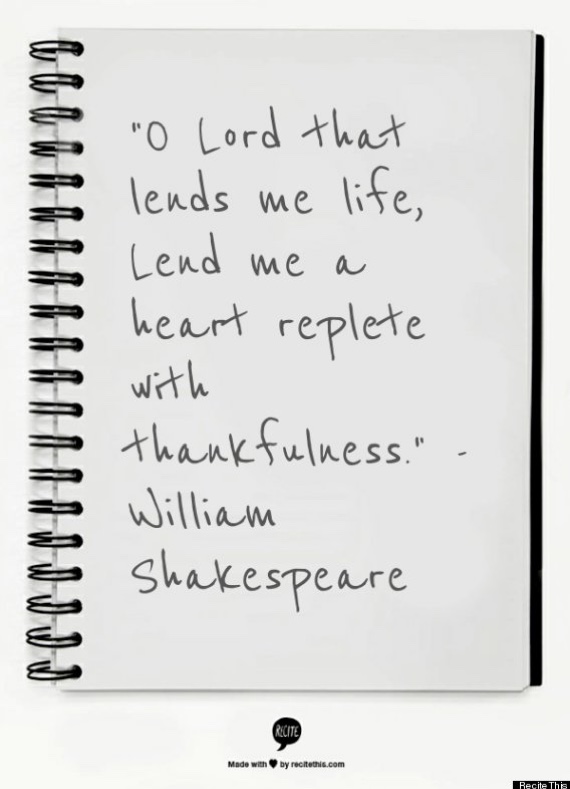 "O Lord that
lends me life,
Lend me a
heart replete
with
thankfulness." -
William
Shakespeare
RECITE
Made with ♥ by recitethis.com
ReciteThis